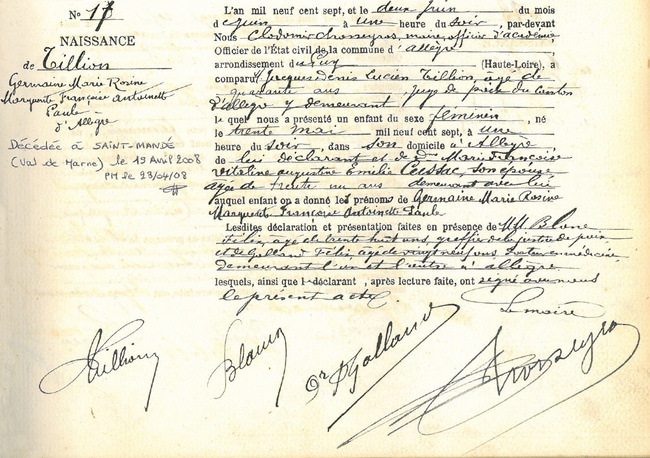 No 17
NAISSANCE
de Tillion
Germaine Marie Rosine
Marguerite Françoise Antoinette
Paule
d'Allègre
Décédée à SAINT-MANDÉ
(Val de Marne) le 19 Avril 2008
PM le 23/04/08
L'an mil neuf cent sept, et le deux juin du mois
de juin à une heure du soir, par-devant
Nous Clodomir Chosseyros, maire, officier d'académie
Officier de l'État civil de la commune d'allègre
arrondissement du Puy (Haute-Loire), a
comparu Jacques Denis Lucien Tillion, âgé de
quarante ans juge de paix du canton
d'allègre y demeurant
lequel nous a présenté un enfant du sexe féminin, né
le trente mai mil neuf cent sept, à une
heure du soir, dans son domicile à Allègre
de lui déclarant et de Marie Françoise
augustine Emilie Cussac, son épouse
âgée de trente un ans demeurant avec lui
auquel enfant on a donné les prénoms de Germaine Marie Rosine
Marguerite Françoise Antoinette Paule
Lesdites déclaration et présentation faites en présence de MM. Blanc
Félix, âgé de trente huit ans, greffier de la justice de paix
et de Galland Félix, âgé de vingt neuf ans, docteur en médecine,
demeurant l'un et l'autre à allègre
lesquels, ainsi que le déclarant, après lecture faite, ont signé avec nous
le présent acte.
Le maire
Tillion Blanc Dr F Galland Chosseyros